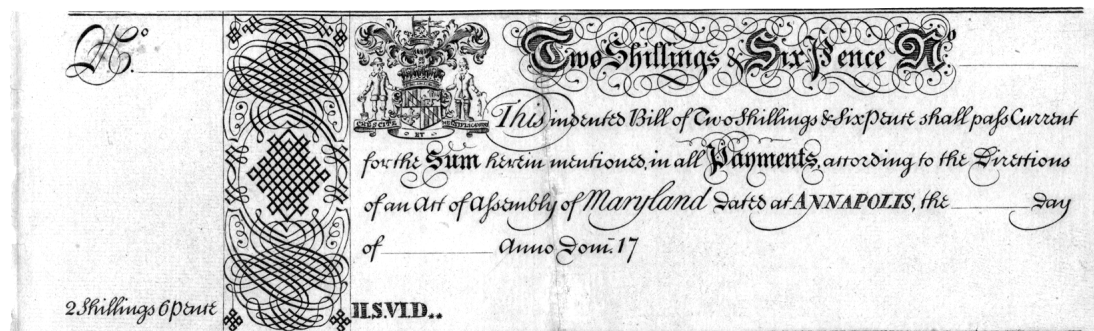 No.
Two Shillings & Six Pence No
CRESCITE ET MULTIPLICAMINI
This indented Bill of Two Shillings & Six Pence shall pass Current
for the Sum herein mentioned, in all Payments, according to the Directions
of an Act of Assembly of Maryland Dated at ANNAPOLIS, the day
of Anno Dom. 17
2 Shillings 6 Pence
II.S.VI.D..